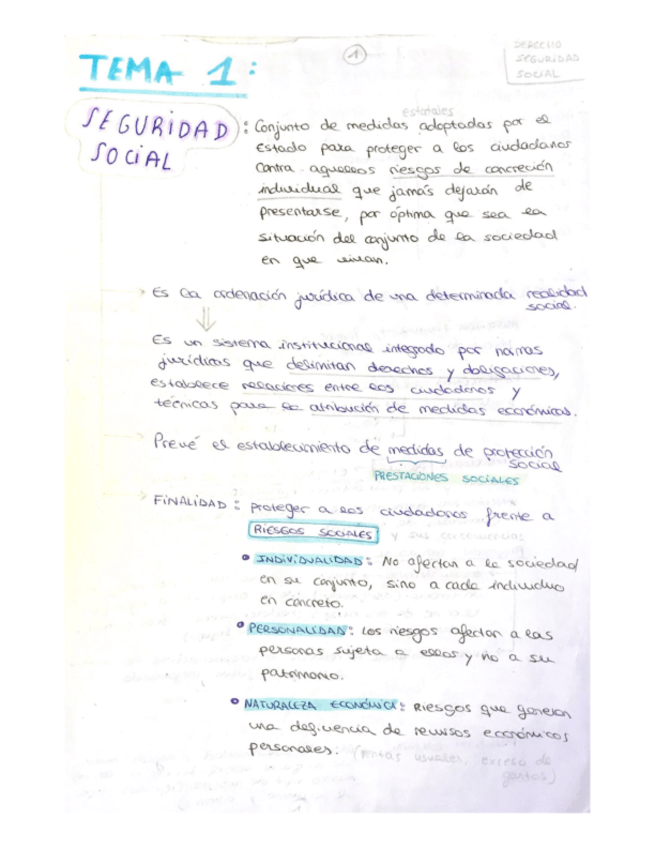 1
DERECHO
SEGURIDAD
SOCIAL
TEMA 1:
SEGURIDAD
SOCIAL
estatales
: Conjunto de medidas adoptadas por el
Estado para proteger a los ciudadanos
contra aquellos riesgos de concreción
individual que jamás dejarán de
presentarse, por óptima que sea la
situación del conjunto de la sociedad
en que vivan.
Es la ordenación jurídica de una determinada realidad
social.
Es un sistema institucional integrado por normas
jurídicas que delimitan derechos y obligaciones,
establece relaciones entre los ciudadanos y
técnicas para la atribución de medidas económicas.
Prevé el establecimiento de medidas de protección
social
PRESTACIONES SOCIALES
FINALIDAD: proteger a los ciudadanos frente a
RIESGOS SOCIALES y sus consecuencias
• INDIVIDUALIDAD: No afectan a la sociedad
en su conjunto, sino a cada individuo
en concreto.
• PERSONALIDAD: Los riesgos afectan a las
personas sujeta a ellos y no a su
patrimonio.
• NATURALEZA ECONÓMICA: Riesgos que generan
una deficiencia de recursos económicos
personales. (rentas usuales, exceso de
gastos)